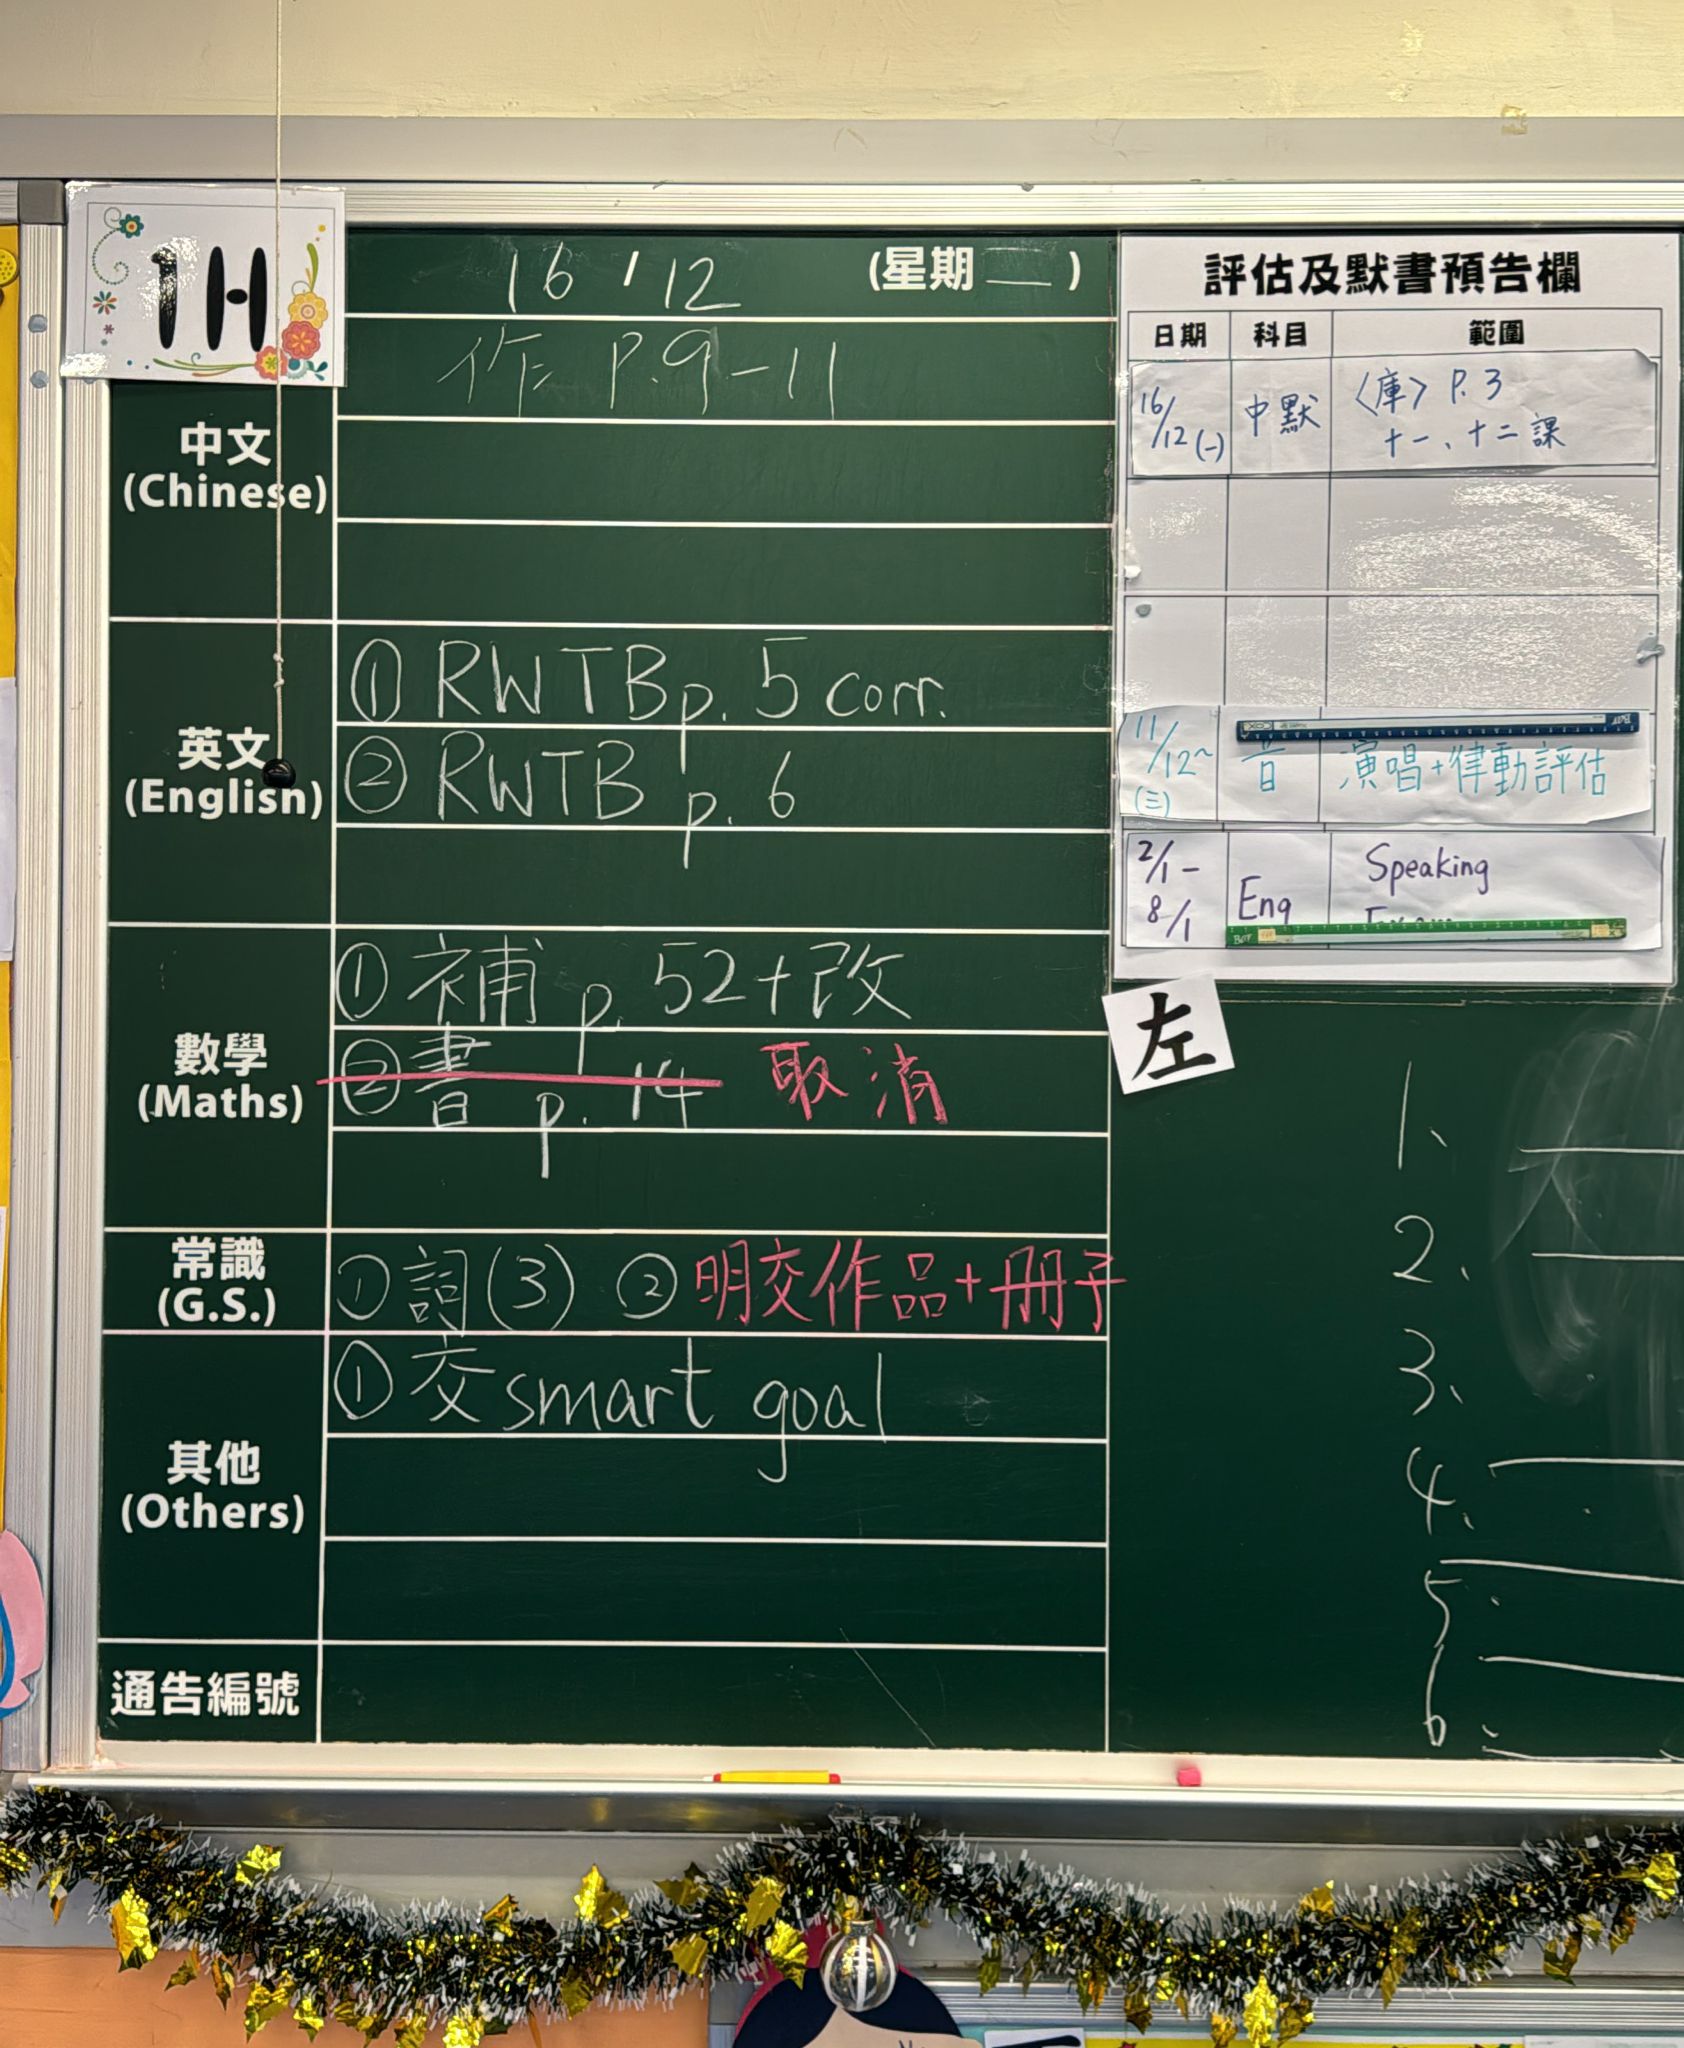 1H
16 / 12 (星期一)
作 P.9-11
中文
(Chinese)
① RWTB p. 5 corr.
② RWTB p. 6
英文
(English)
① 補 p. 52+改
② 書 p. 14 取消
數學
(Maths)
常識
(G.S.)
① 詞(3) ② 明交作品+冊子
① 交 smart goal
其他
(Others)
通告編號
評估及默書預告欄
日期 科目 範圍
16/12 (一) 中默 〈庫〉 P.3
十一、十二課
11/12~ (三) 音 演唱+律動評估
2/1-8/1 Eng Speaking
左
1、
2、
3、
4、
5、
6、